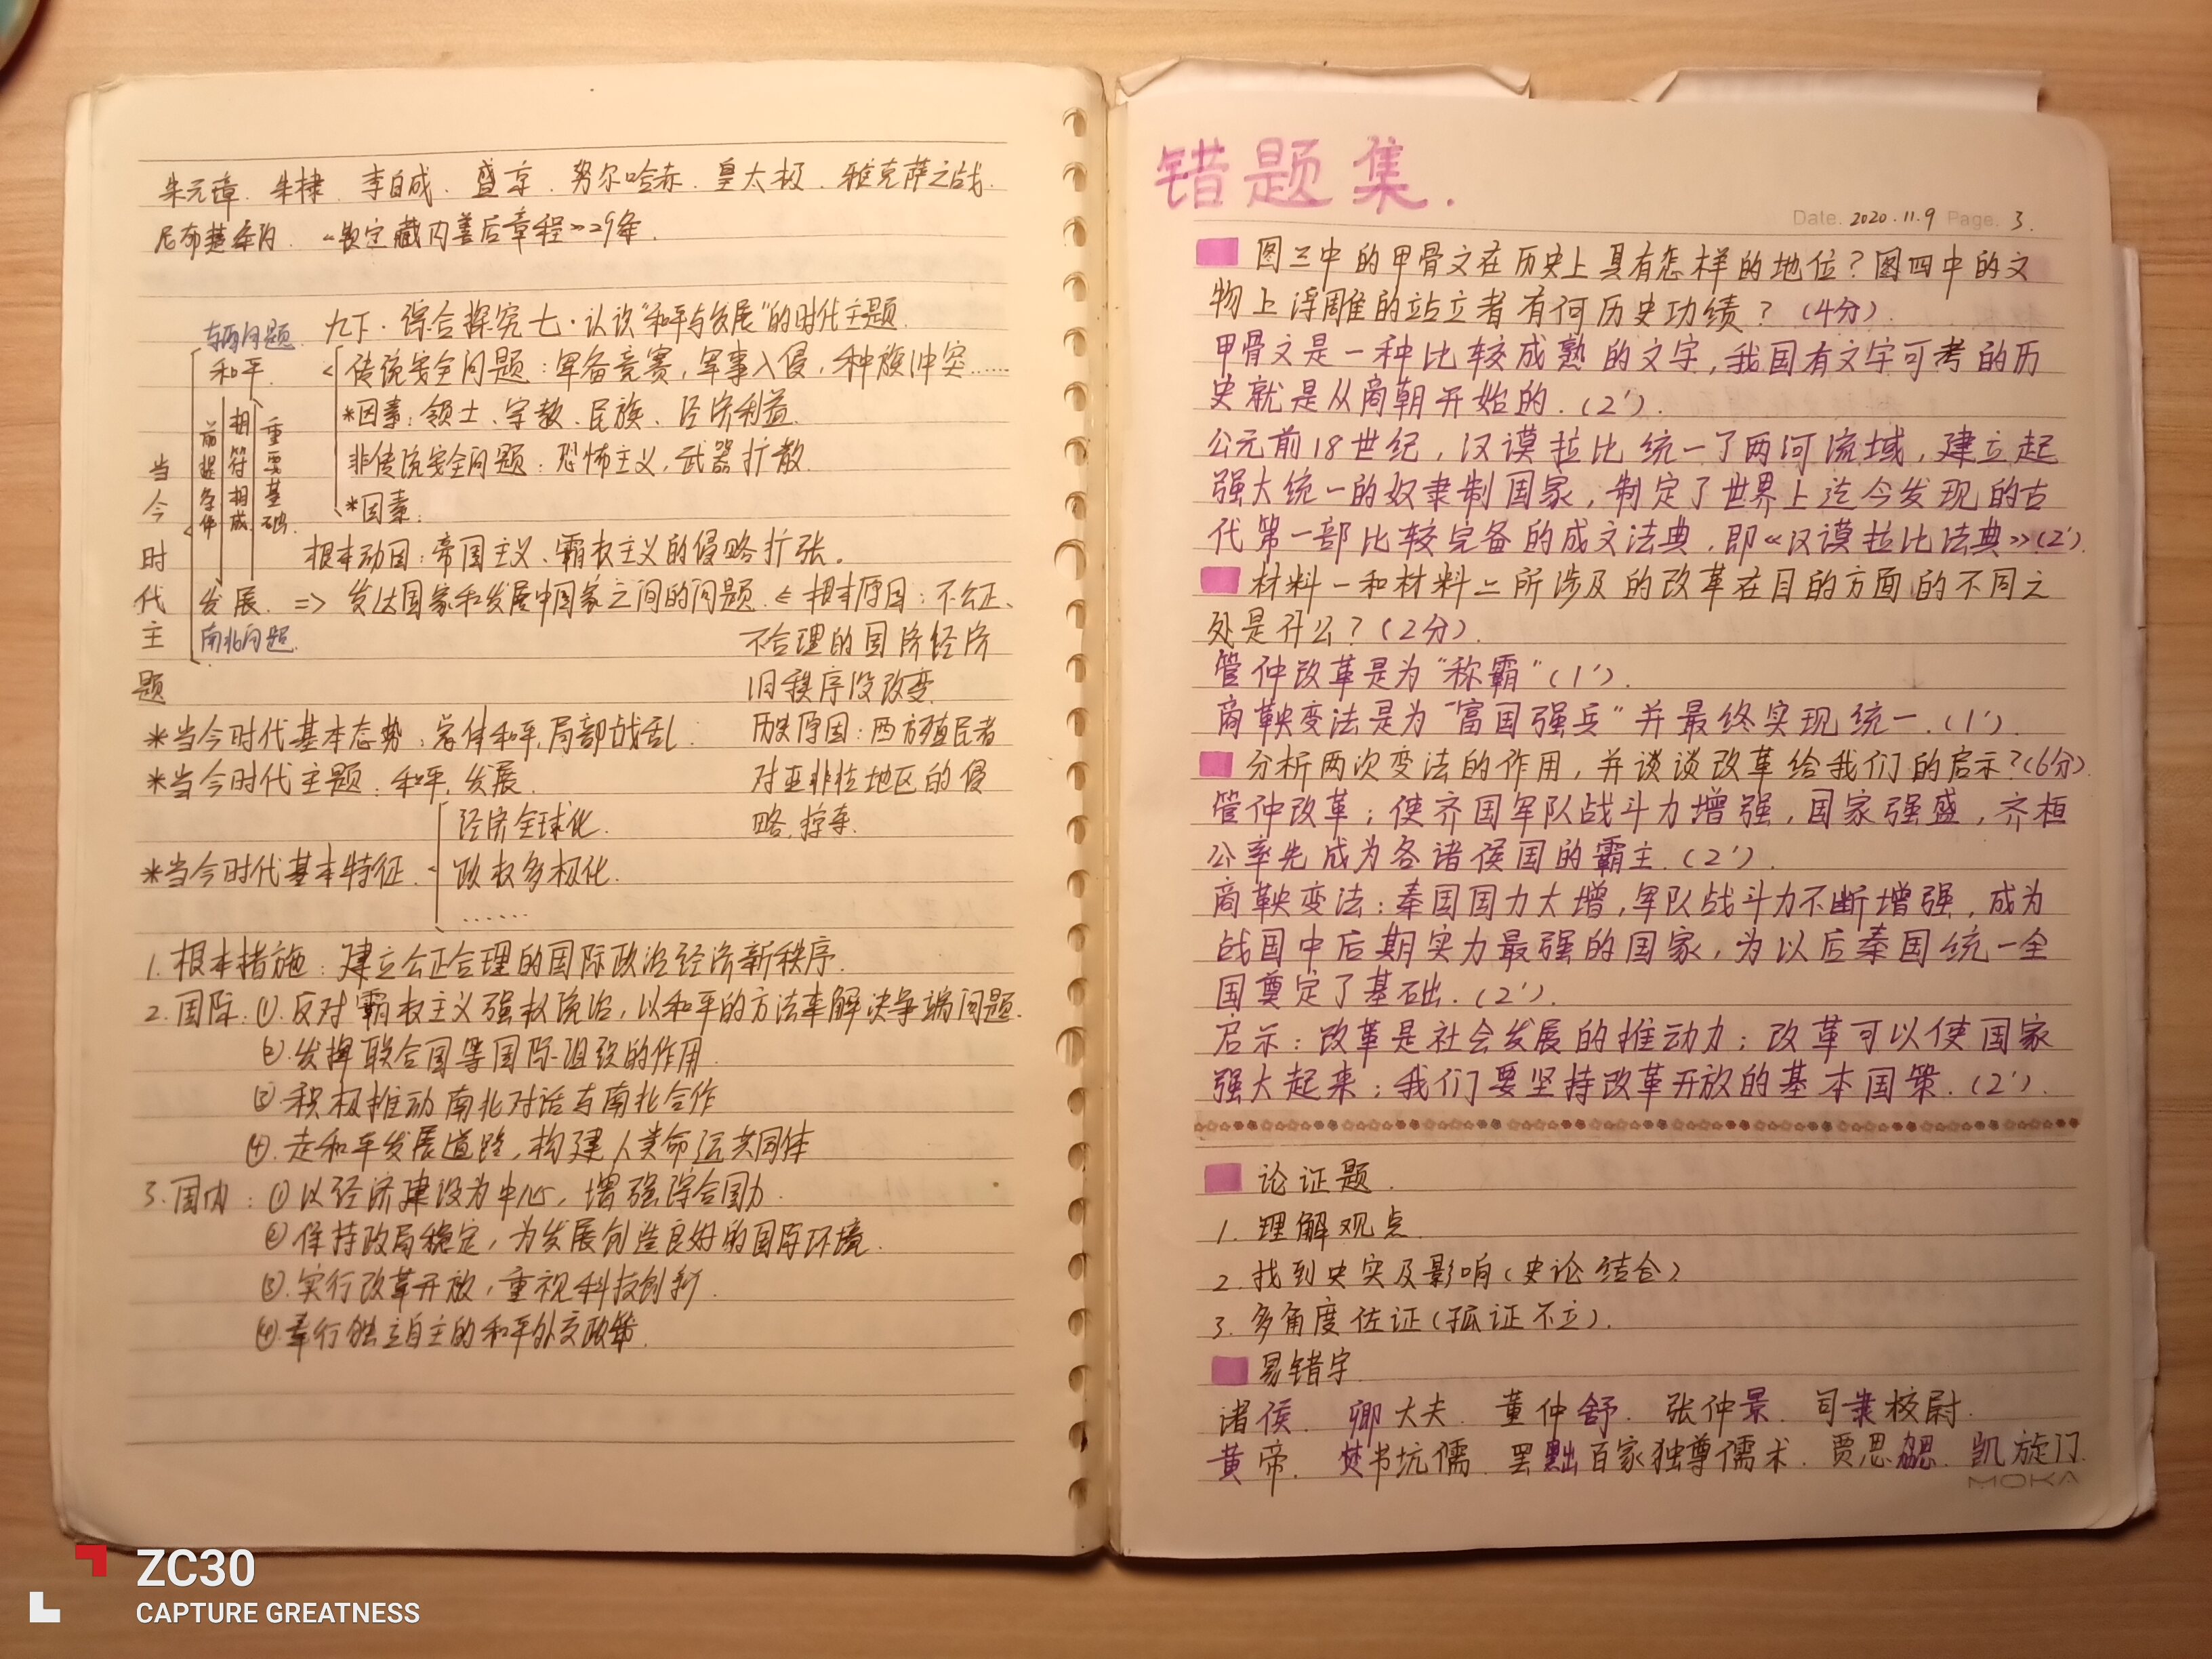 朱元璋. 朱棣. 李自成. 盛京. 努尔哈赤. 皇太极. 雅克萨之战.
尼布楚条约. 《钦定藏内善后章程》29条.
九下·综合探究七·认识"和平与发展"的时代主题.
东西问题.
和平.
传统安全问题：军备竞赛，军事入侵，种族冲突……
*因素：领土、宗教、民族、经济利益.
非传统安全问题：恐怖主义，武器扩散.
*因素：
前提条件
相辅相成
重要基础.
当今时代主题
根本动因：帝国主义、霸权主义的侵略扩张。
发展. => 发达国家和发展中国家之间的问题. ∈ 根本原因：不公正、
南北问题.
不合理的国际经济
旧秩序没改变.
*当今时代基本态势：总体和平,局部战乱.
历史原因：西方殖民者
*当今时代主题：和平、发展.
对亚非拉地区的侵
略,掠夺.
经济全球化.
*当今时代基本特征.
政权多极化.
……
1. 根本措施：建立公正合理的国际政治经济新秩序.
2. 国际：①.反对霸权主义强权政治，以和平的方法来解决争端问题.
②.发挥联合国等国际组织的作用.
③.积极推动南北对话与南北合作
④.走和平发展道路，构建人类命运共同体
3. 国内：①以经济建设为中心，增强综合国力.
②保持政局稳定，为发展创造良好的国际环境.
③.实行改革开放，重视科技创新.
④.奉行独立自主的和平外交政策.
错题集.
Date. 2020.11.9 Page. 3.
图三中的甲骨文在历史上具有怎样的地位？图四中的文
物上浮雕的站立者有何历史功绩？(4分).
甲骨文是一种比较成熟的文字，我国有文字可考的历
史就是从商朝开始的.(2').
公元前18世纪，汉谟拉比统一了两河流域，建立起
强大统一的奴隶制国家，制定了世界上迄今发现的古
代第一部比较完备的成文法典，即《汉谟拉比法典》(2').
材料一和材料二所涉及的改革在目的方面的不同之
处是什么？(2分).
管仲改革是为"称霸"(1').
商鞅变法是为"富国强兵"并最终实现统一.(1').
分析两次变法的作用，并谈谈改革给我们的启示?(6分).
管仲改革；使齐国军队战斗力增强，国家强盛，齐桓
公率先成为各诸侯国的霸主.(2').
商鞅变法：秦国国力大增，军队战斗力不断增强，成为
战国中后期实力最强的国家，为以后秦国统一全
国奠定了基础.(2').
启示：改革是社会发展的推动力；改革可以使国家
强大起来；我们要坚持改革开放的基本国策.(2').
论证题.
1. 理解观点.
2. 找到史实及影响(史论结合)
3. 多角度佐证(孤证不立).
易错字
诸侯. 卿大夫. 董仲舒. 张仲景. 司隶校尉.
黄帝. 焚书坑儒. 罢黜百家独尊儒术. 贾思勰. 凯旋门.
MOKA
ZC30
CAPTURE GREATNESS